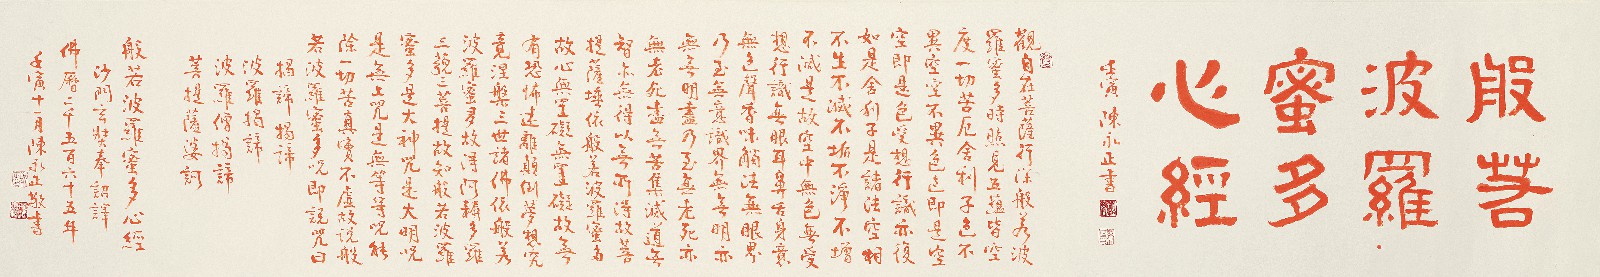 般若
波羅
蜜多
心經
壬寅 陳永正書
觀自在菩薩行深般若波
羅蜜多時照見五蘊皆空
度一切苦厄舍利子色不
異空空不異色色即是空
空即是色受想行識亦復
如是舍利子是諸法空相
不生不滅不垢不淨不增
不減是故空中無色無受
想行識無眼耳鼻舌身意
無色聲香味觸法無眼界
乃至無意識界無無明亦
無無明盡乃至無老死亦
無老死盡無苦集滅道無
智亦無得以無所得故菩
提薩埵依般若波羅蜜多
故心無罣礙無罣礙故無
有恐怖遠離顛倒夢想究
竟涅槃三世諸佛依般若
波羅蜜多故得阿耨多羅
三藐三菩提故知般若波羅
蜜多是大神咒是大明咒
是無上咒是無等等咒能
除一切苦真實不虛故說般
若波羅蜜多咒即說咒曰
揭諦揭諦
波羅揭諦
波羅僧揭諦
菩提薩婆訶
般若波羅蜜多心經
沙門玄奘奉詔譯
佛曆二千五百六十五年
壬寅十一月陳永正敬書